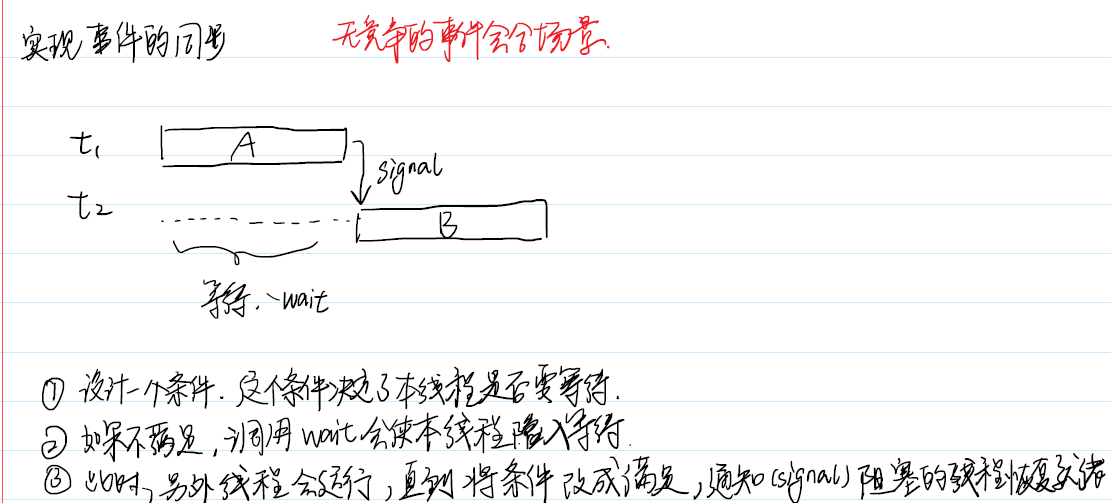 实现事件的同步 无竞争的事件会合场景.
t₁ A
signal
t₂ B
等待.、wait
① 设计一个条件. 这个条件决定了本线程是否要等待.
② 如果不满足, 调用 wait 会使本线程陷入等待.
③ 此时, 另外线程会运行, 直到将条件改成满足, 通知(signal) 阻塞的线程恢复就绪